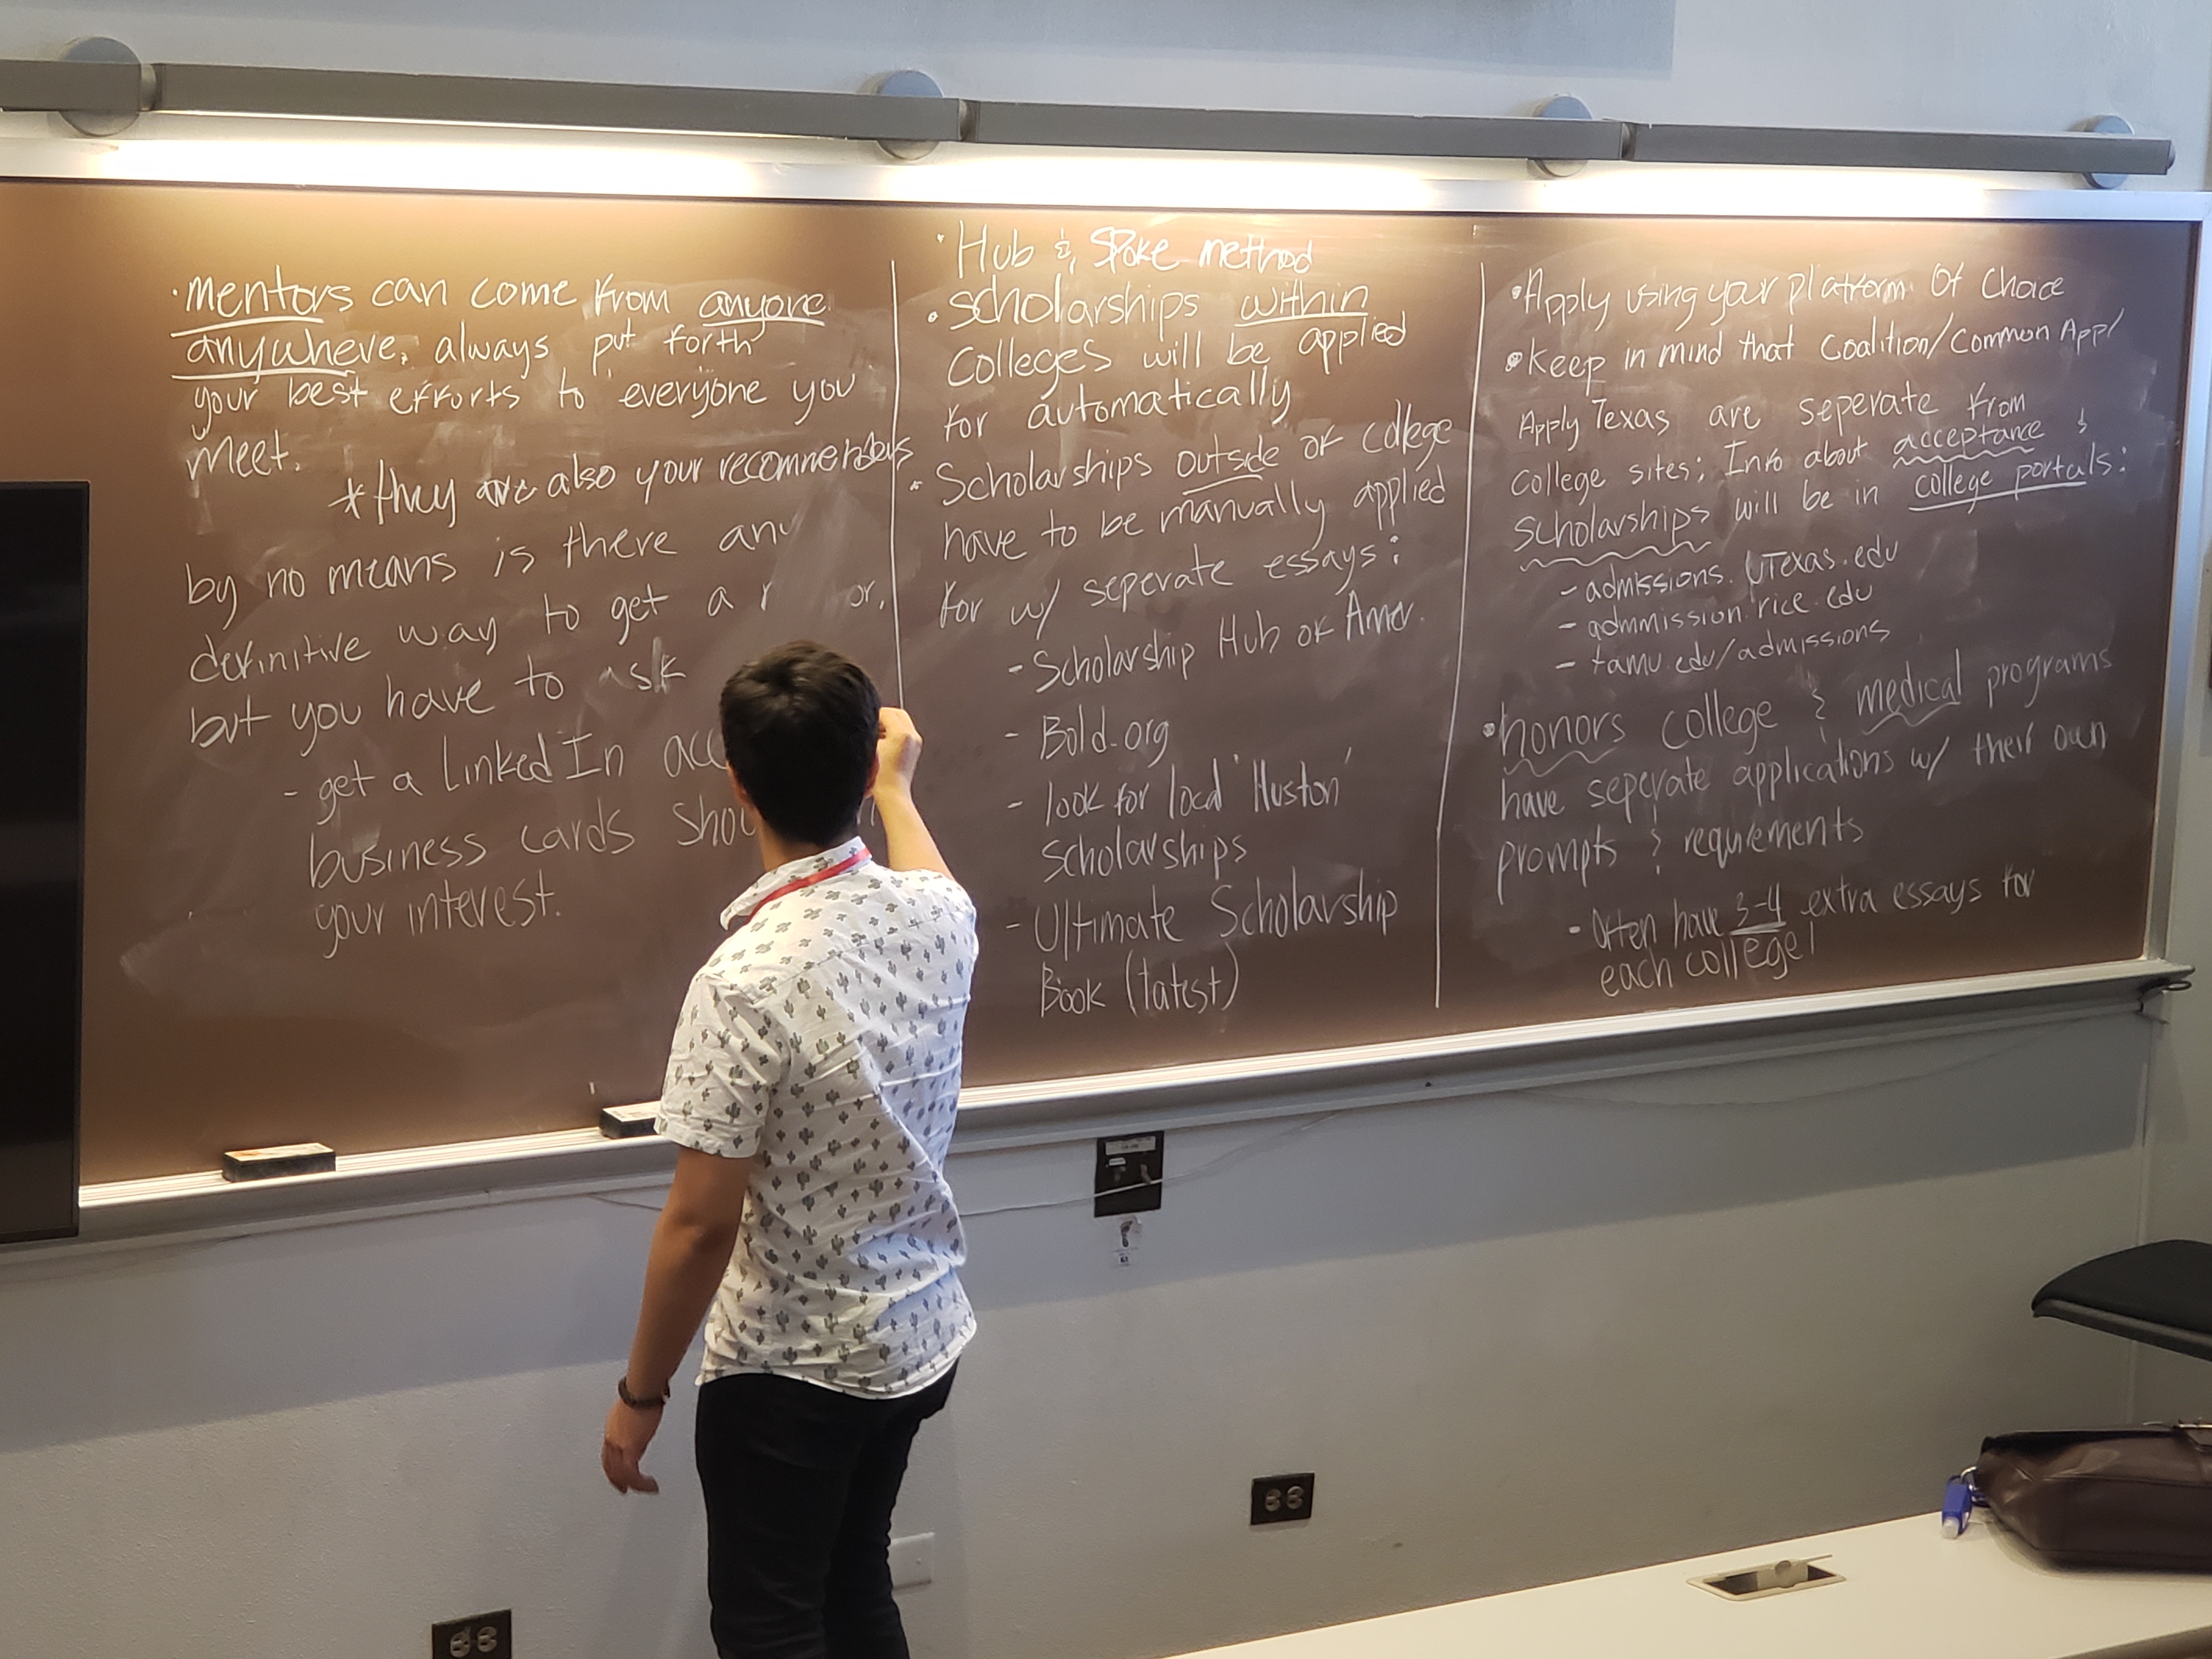 ·mentors can come from anyone
anywhere, always put forth
your best efforts to everyone you
meet.
*they are also your recommenders
by no means is there any
definitive way to get a
but you have to ask
- get a LinkedIn
business cards
your interest.
· Hub & Spoke method
· scholarships within
colleges will be applied
for automatically
· Scholarships outside of college
have to be manually applied
for w/ seperate essays:
- Scholarship Hub of Amer.
- Bold.org
- look for local 'Huston'
scholarships
- Ultimate Scholarship
Book (latest)
·Apply using your platform of choice
·keep in mind that Coalition/Common App/
Apply Texas are seperate from
college sites; Info about acceptance &
scholarships will be in college portals:
- admissions.UTexas.edu
- admmission.rice.edu
- tamu.edu/admissions
·honors college & medical programs
have seperate applications w/ their own
prompts & requirements
- Often have 3-4 extra essays for
each college!